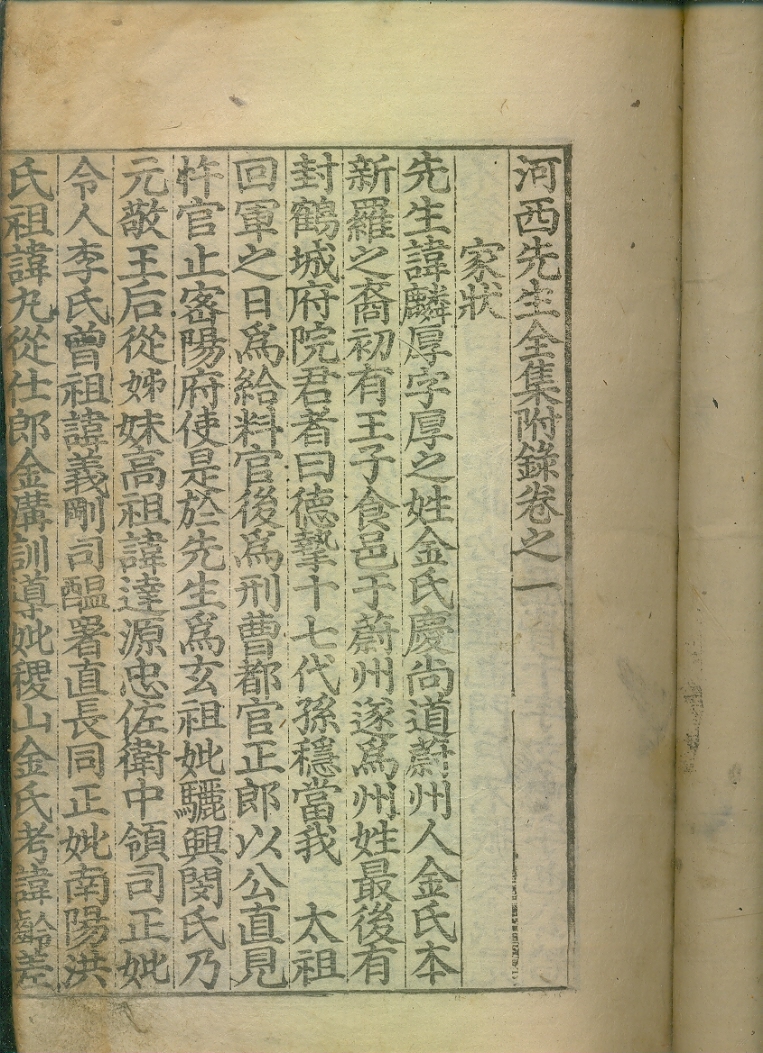 河西先生全集附錄卷之一
家狀
先生諱麟厚字厚之姓金氏慶尚道蔚州人金氏本
新羅之裔初有王子食邑于蔚州遂爲州姓最後有
封鶴城府院君者曰德摯十七代孫穩當我 太祖
回軍之日爲給料官後爲刑曹都官正郎以公直見
忤官止密陽府使是於先生爲玄祖妣驪興閔氏乃
元敬王后從姊妹高祖諱達源忠佐衛中領司正妣
令人李氏曾祖諱義剛司醞署直長同正妣南陽洪
氏祖諱丸從仕郎金溝訓導妣稷山金氏考諱齡差